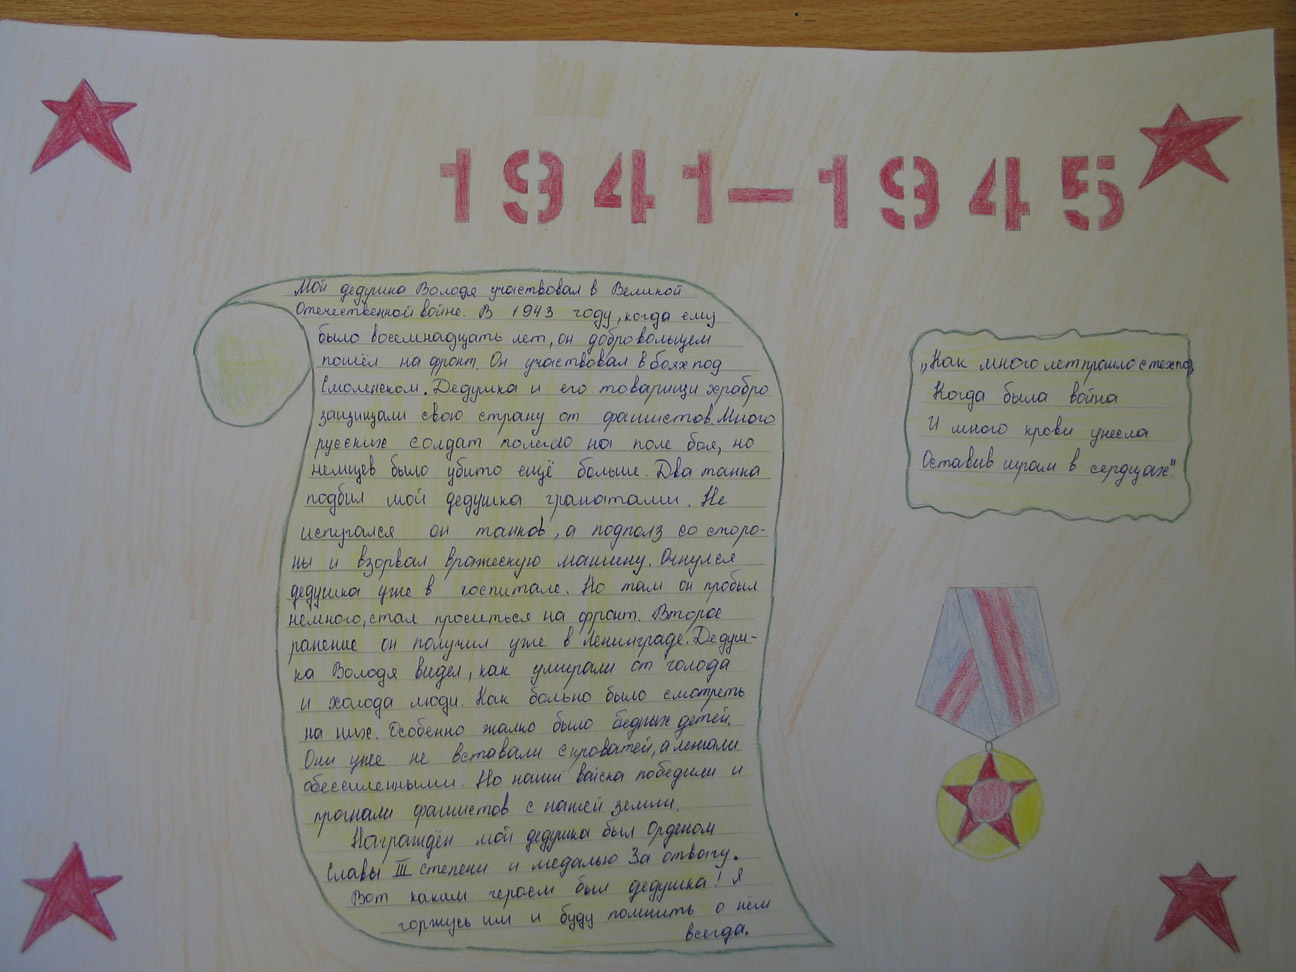 1941-1945
Мой дедушка Володя участвовал в Великой
Отечественной войне. В 1943 году, когда ему
было восемнадцать лет, он добровольцем
пошёл на фронт. Он участвовал в боях под
Смоленском. Дедушка и его товарищи храбро
защищали свою страну от фашистов. Много
русских солдат полегло на поле боя, но
немцев было убито ещё больше. Два танка
подбил мой дедушка гранатами. Не
испугался он танков, а подполз со сторо-
ны и взорвал вражескую машину. Очнулся
дедушка уже в госпитале. Но там он пробыл
немного, стал проситься на фронт. Второе
ранение он получил уже в Ленинграде. Дедуш-
ка Володя видел, как умирали от голода
и холода люди. Как больно было смотреть
на них. Особенно жалко было бедных детей.
Они уже не вставали с кроватей, а лежали
обессиленными. Но наши войска победили и
прогнали фашистов с нашей земли.
Награждён мой дедушка был Орденом
Славы III степени и медалью За отвагу.
Вот каким героем был дедушка! Я
горжусь им и буду помнить о нём
всегда.
„Как много лет прошло с тех пор,
Когда была война
И много крови унесла
Оставив шрам в сердцах."